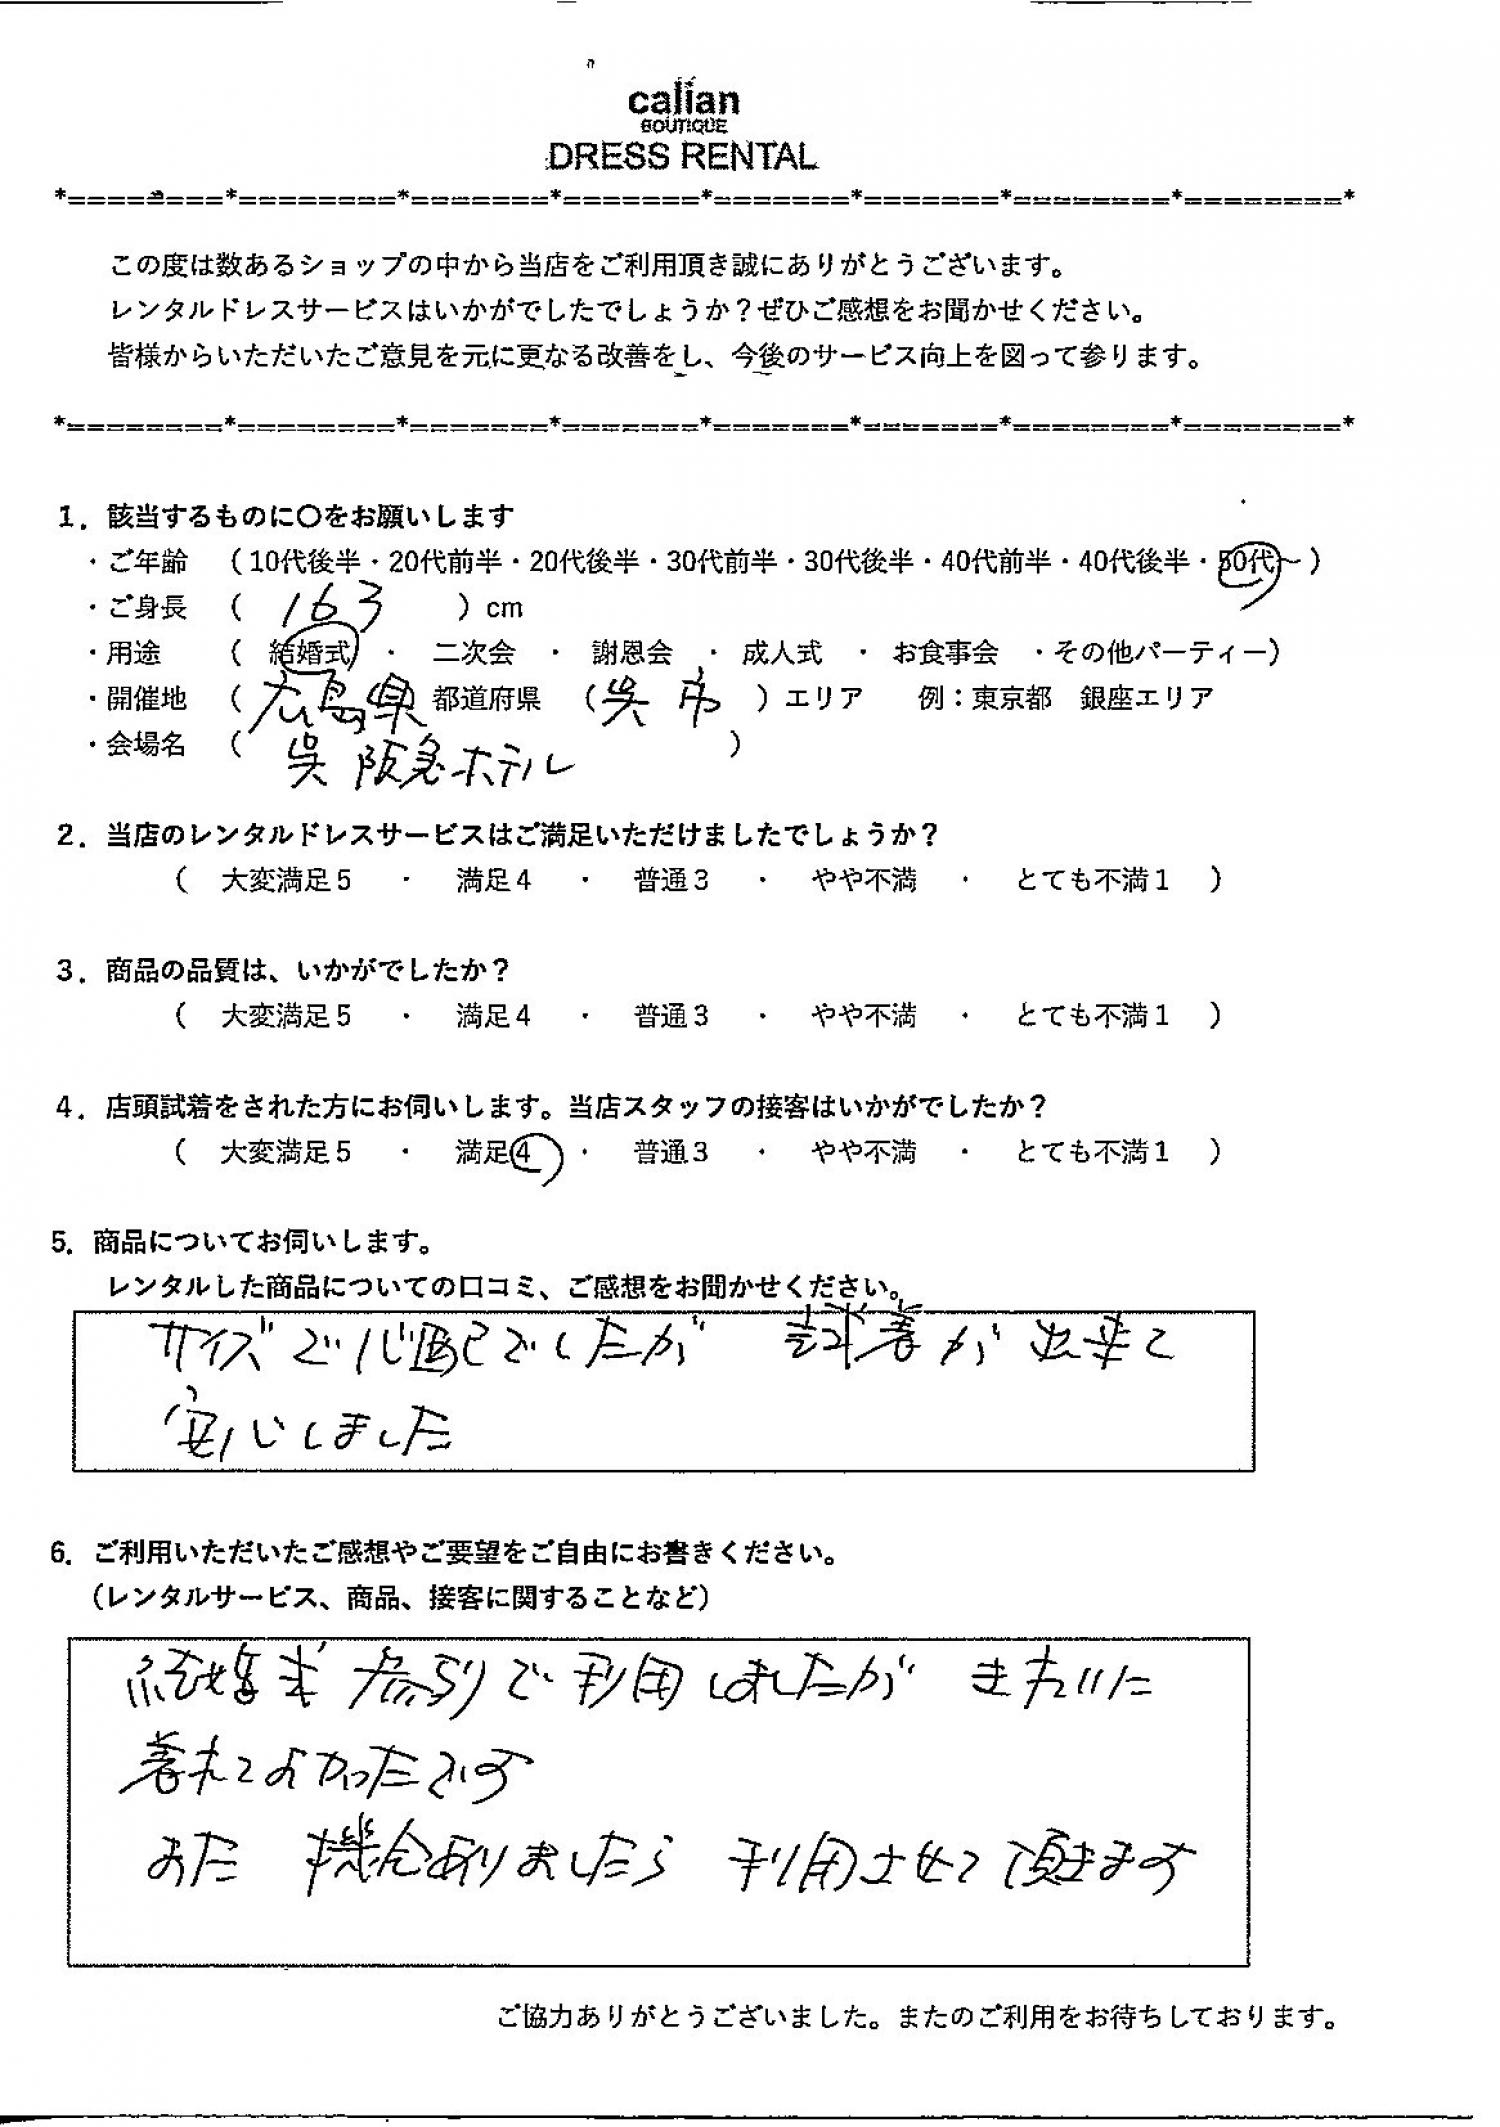 calian
BOUTIQUE
DRESS RENTAL
*========*========*=======*=======*=======*=======*========*========*
この度は数あるショップの中から当店をご利用頂き誠にありがとうございます。
レンタルドレスサービスはいかがでしたでしょうか？ぜひご感想をお聞かせください。
皆様からいただいたご意見を元に更なる改善をし、今後のサービス向上を図って参ります。
*========*========*=======*=======*=======*=======*========*========*
1．該当するものに〇をお願いします
・ご年齢 （10代後半・20代前半・20代後半・30代前半・30代後半・40代前半・40代後半・50代～）
・ご身長 （ 163 ）cm
・用途 （ 結婚式 ・ 二次会 ・ 謝恩会 ・ 成人式 ・ お食事会 ・その他パーティー）
・開催地 （ 広島県 都道府県 （呉市 ）エリア 例：東京都 銀座エリア
・会場名 （ 呉 阪急ホテル ）
2．当店のレンタルドレスサービスはご満足いただけましたでしょうか？
（ 大変満足5 ・ 満足4 ・ 普通3 ・ やや不満 ・ とても不満1 ）
3．商品の品質は、いかがでしたか？
（ 大変満足5 ・ 満足4 ・ 普通3 ・ やや不満 ・ とても不満1 ）
4．店頭試着をされた方にお伺いします。当店スタッフの接客はいかがでしたか？
（ 大変満足5 ・ 満足4 ・ 普通3 ・ やや不満 ・ とても不満1 ）
5．商品についてお伺いします。
レンタルした商品についての口コミ、ご感想をお聞かせください。
サイズで心配でしたが 試着が出来て
安心しました
6．ご利用いただいたご感想やご要望をご自由にお書きください。
（レンタルサービス、商品、接客に関することなど）
結婚式参列で利用しましたが きれいに
着れてよかったです
また 機会ありましたら 利用させて頂きます
ご協力ありがとうございました。またのご利用をお待ちしております。